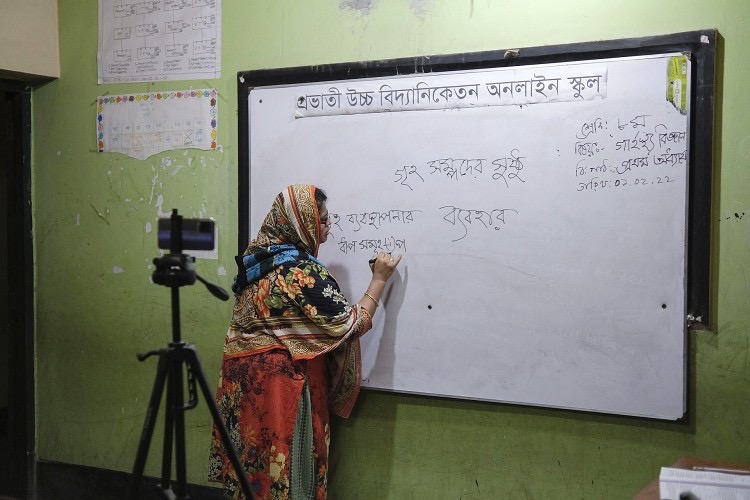 প্রভাতী উচ্চ বিদ্যানিকেতন অনলাইন স্কুল
শ্রেণি: ৮ম
বিষয়:- গার্হস্থ্য বিজ্ঞান
বি: পাঠ: প্রথম অধ্যায়
তারিখ: ০২.০২.২২
গৃহ সম্পদের সুষ্ঠু
ব্যবহার
গৃহ ব্যবস্থাপনার
ধাপ সমূহ